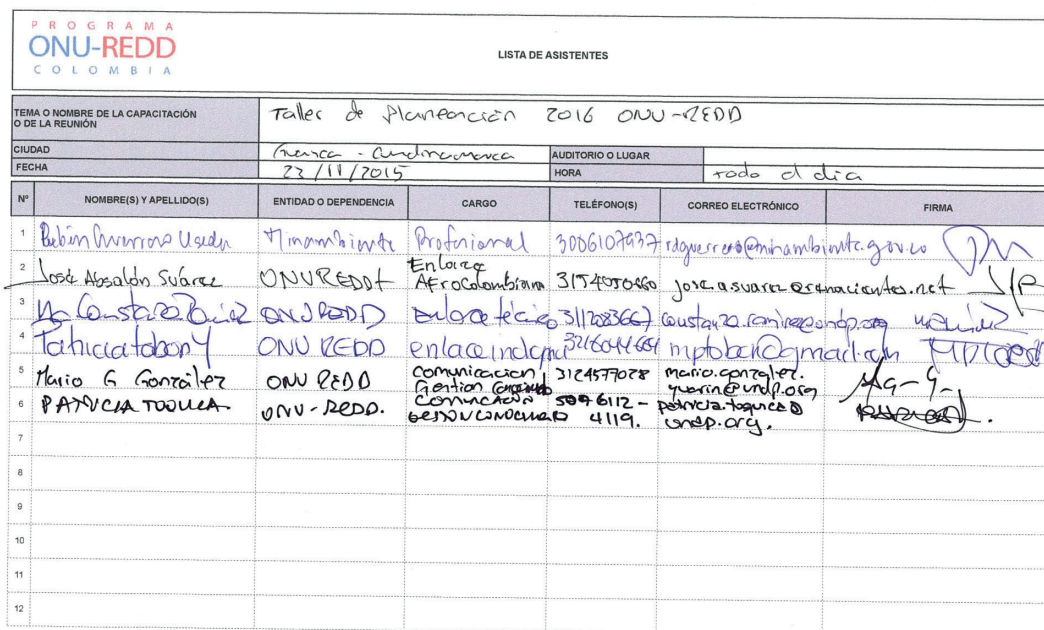 PROGRAMA
ONU-REDD
COLOMBIA
LISTA DE ASISTENTES
TEMA O NOMBRE DE LA CAPACITACIÓN O DE LA REUNIÓN Taller de Planeación 2016 ONU-REDD
CIUDAD Guasca - Cundinamarca AUDITORIO O LUGAR
FECHA 23/11/2015 HORA todo el día
Nº NOMBRE(S) Y APELLIDO(S) ENTIDAD O DEPENDENCIA CARGO TELÉFONO(S) CORREO ELECTRÓNICO FIRMA
1 Rubén Guerrero Useda Minambiente Profesional 3006107937 rdguerrero@minambiente.gov.co
2 José Absalón Suárez ONUREDD+ Enlace Afrocolombiano jose.a.suarez@renacientes.net
3 Ma Constanza Ramírez ONUREDD enlace técnico 3112083667 constanza.ramirez@undp.org
4 Patricia Tobón Y ONU REDD enlace mptobon@gmail.com
5 Mario G González ONU REDD comunicación Gestion 3124577028 mario.gonzalez.guarin@undp.org
6 PATRICIA TOQUICA ONU-REDD. 5096112-4119. patricia.toquica@undp.org.
7
8
9
10
11
12